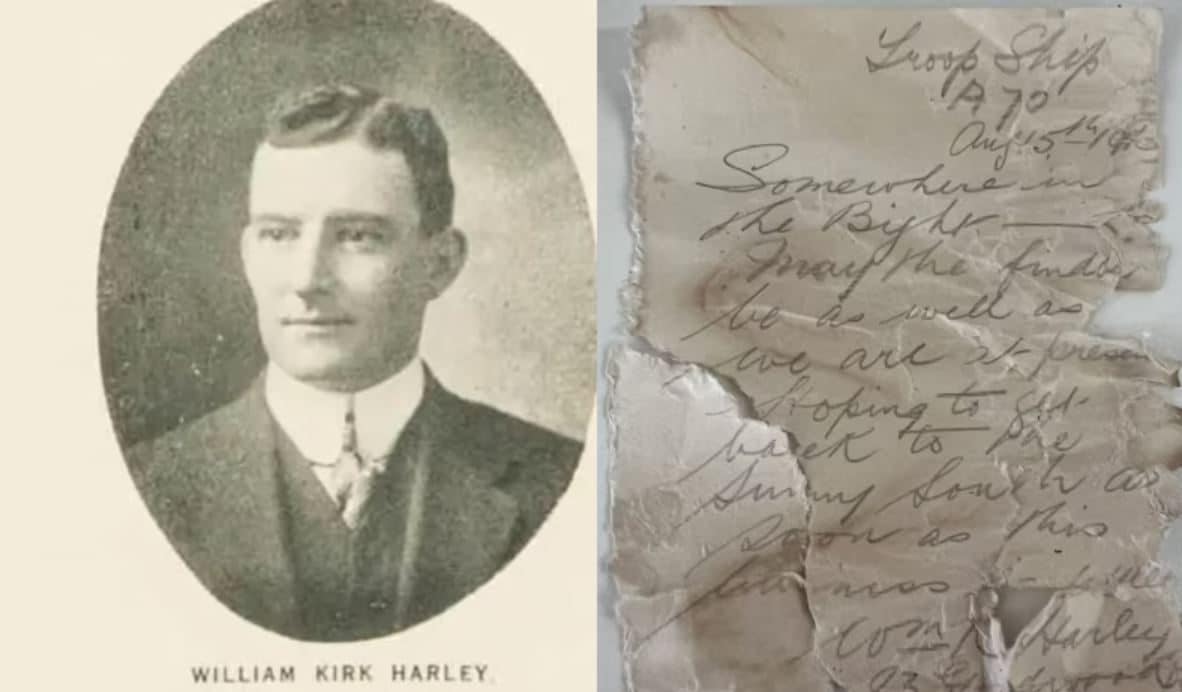 WILLIAM KIRK HARLEY.
Troop Ship
A 70
Aug 15th
Somewhere in
the Bight —
May the finder
be as well as
we are at presen
Hoping to get
back to the
Sunny South as
soon as this
Wm K Harley